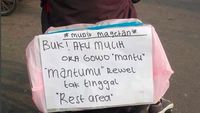 * mudik magetan *
BUK! AKU MULIH
ORA GOWO "mantu"
"mantumu" Rewel
tak tinggal
"Rest area"